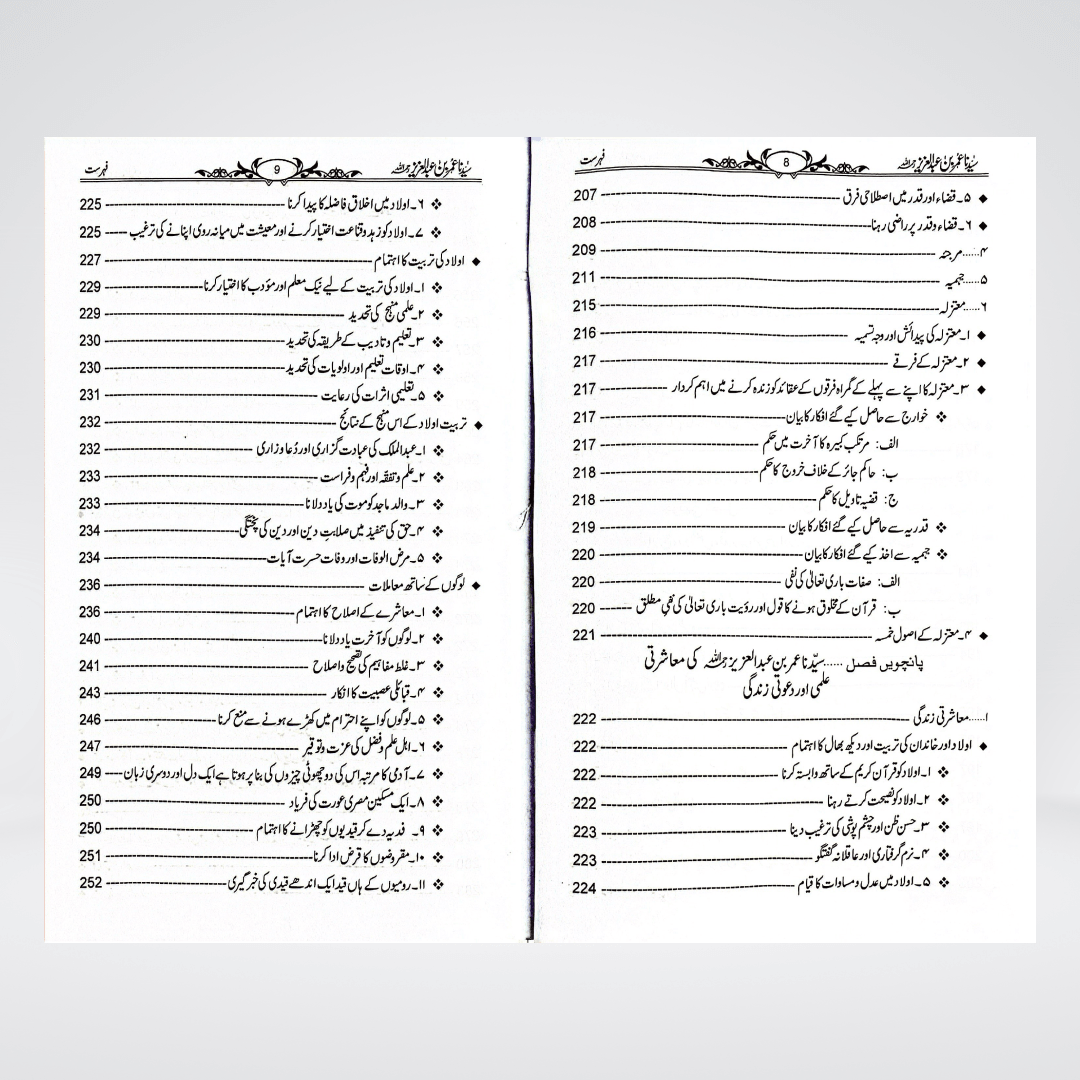 سیّدنا عمر بن عبدالعزیز رحمہ اللہ 8 فہرست
۵۔ قضاء اور قدر میں اصطلاحی فرق 207
۶۔ قضاء و قدر پر راضی رہنا 208
۴.....مرجئہ 209
۵.....جہمیہ 211
۶.....معتزلہ 215
۱۔ معتزلہ کی پیدائش اور وجہ تسمیہ 216
۲۔ معتزلہ کے فرقے 217
۳۔ معتزلہ کا اپنے سے پہلے کے گمراہ فرقوں کے عقائد کو زندہ کرنے میں اہم کردار 217
خوارج سے حاصل کیے گئے افکار کا بیان 217
الف: مرتکب کبیرہ کا آخرت میں حکم 217
ب: حاکم جائر کے خلاف خروج کا حکم 218
ج: قضیہ تاویل کا حکم 218
قدریہ سے حاصل کیے گئے افکار کا بیان 219
جہمیہ سے اخذ کیے گئے افکار کا بیان 220
الف: صفات باری تعالیٰ کی نفی 220
ب: قرآن کے مخلوق ہونے کا قول اور رؤیت باری تعالیٰ کی نفی مطلق 220
۴۔ معتزلہ کے اصول خمسہ 221
پانچویں فصل .....سیّدنا عمر بن عبدالعزیز رحمہ اللہ کی معاشرتی
علمی اور دعوتی زندگی
۱.....معاشرتی زندگی 222
اولاد اور خاندان کی تربیت اور دیکھ بھال کا اہتمام 222
۱۔ اولاد کو قرآن کریم کے ساتھ وابستہ کرنا 222
۲۔ اولاد کو نصیحت کرتے رہنا 222
۳۔ حسن ظن اور چشم پوشی کی ترغیب دینا 223
۴۔ نرم گرفتاری اور عاقلانہ گفتگو 223
۵۔ اولاد میں عدل و مساوات کا قیام 224
سیّدنا عمر بن عبدالعزیز رحمہ اللہ 9 فہرست
۶۔ اولاد میں اخلاق فاضلہ کا پیدا کرنا 225
۷۔ اولاد کو زہد و قناعت اختیار کرنے اور معیشت میں میانہ روی اپنانے کی ترغیب 225
اولاد کی تربیت کا اہتمام 227
۱۔ اولاد کی تربیت کے لیے نیک معلم اور مؤدب کا اختیار کرنا 229
۲۔ علمی منہج کی تحدید 229
۳۔ تعلیم و تادیب کے طریقہ کی تحدید 230
۴۔ اوقات تعلیم اور اولویات کی تحدید 230
۵۔ تعلیمی اثرات کی رعایت 231
تربیت اولاد کے اس منہج کے نتائج 232
۱۔ عبدالملک کی عبادت گزاری اور دُعا و زاری 232
۲۔ علم و تفقہ اور فہم و فراست 233
۳۔ والد ماجد کو موت کی یاد دلانا 233
۴۔ حق کی تنفیذ میں صلابتِ دین اور دین کی پختگی 234
۵۔ مرض الوفات اور وفات حسرت آیات 234
لوگوں کے ساتھ معاملات 236
۱۔ معاشرے کے اصلاح کا اہتمام 236
۲۔ لوگوں کو آخرت یاد دلانا 240
۳۔ غلط مفاہیم کی تصحیح و اصلاح 241
۴۔ قبائلی عصبیت کا انکار 243
۵۔ لوگوں کو اپنے احترام میں کھڑے ہونے سے منع کرنا 246
۶۔ اہل علم و فضل کی عزت و توقیر 247
۷۔ آدمی کا مرتبہ اس کی دو چھوٹی چیزوں کی بنا پر ہوتا ہے ایک دل اور دوسری زبان 249
۸۔ ایک مسکین مصری عورت کی فریاد 250
۹۔ فدیہ دے کر قیدیوں کو چھڑانے کا اہتمام 250
۱۰۔ مقروضوں کا قرض ادا کرنا 251
۱۱۔ رومیوں کے ہاں قید ایک اندھے قیدی کی خبر گیری 252